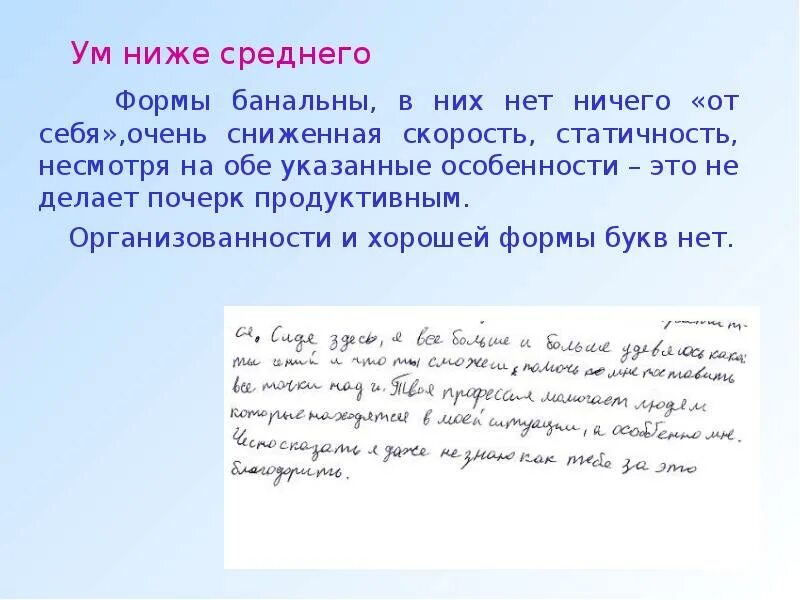 Ум ниже среднего
Формы банальны, в них нет ничего «от
себя»,очень сниженная скорость, статичность,
несмотря на обе указанные особенности – это не
делает почерк продуктивным.
Организованности и хорошей формы букв нет.
ся. Сидя здесь, я все больше и больше удевляюсь кака:
ты и что ты сможеш помочь мне поставить
все точки над и. Твоя профессия помогает людям
которые находятся в моей ситуации, а особбенно мне.
Чесно сказать я даже не знаю как тебе за это
благодорить.